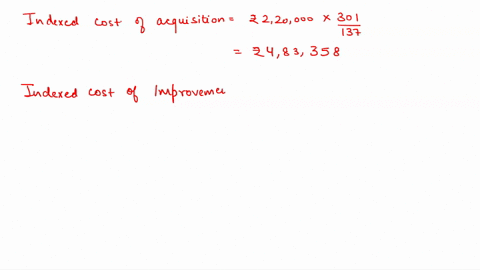 Indexed cost of acquisition = ₹ 2,20,000 × 301/137
= ₹ 4,83,358
Indexed cost of Improveme